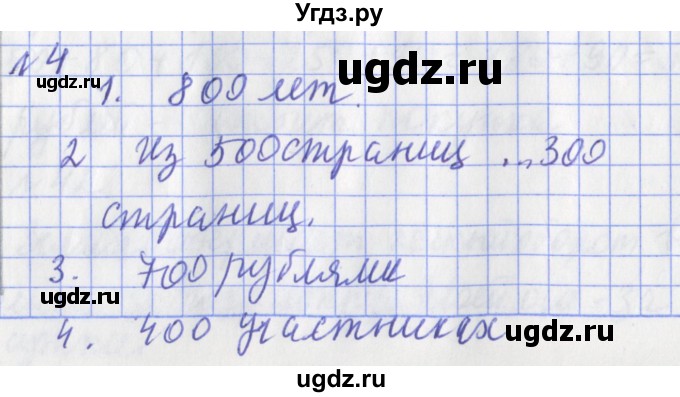 Угдз.ру
№4
ugdz.ru
ugdz.ru
1. 800 лет.
2 из 500 страниц ... 300
страниц.
ugdz.ru
3. 700 рублями
ugdz.ru
4. 400 участниках
ugdz.ru
ugdz.ru